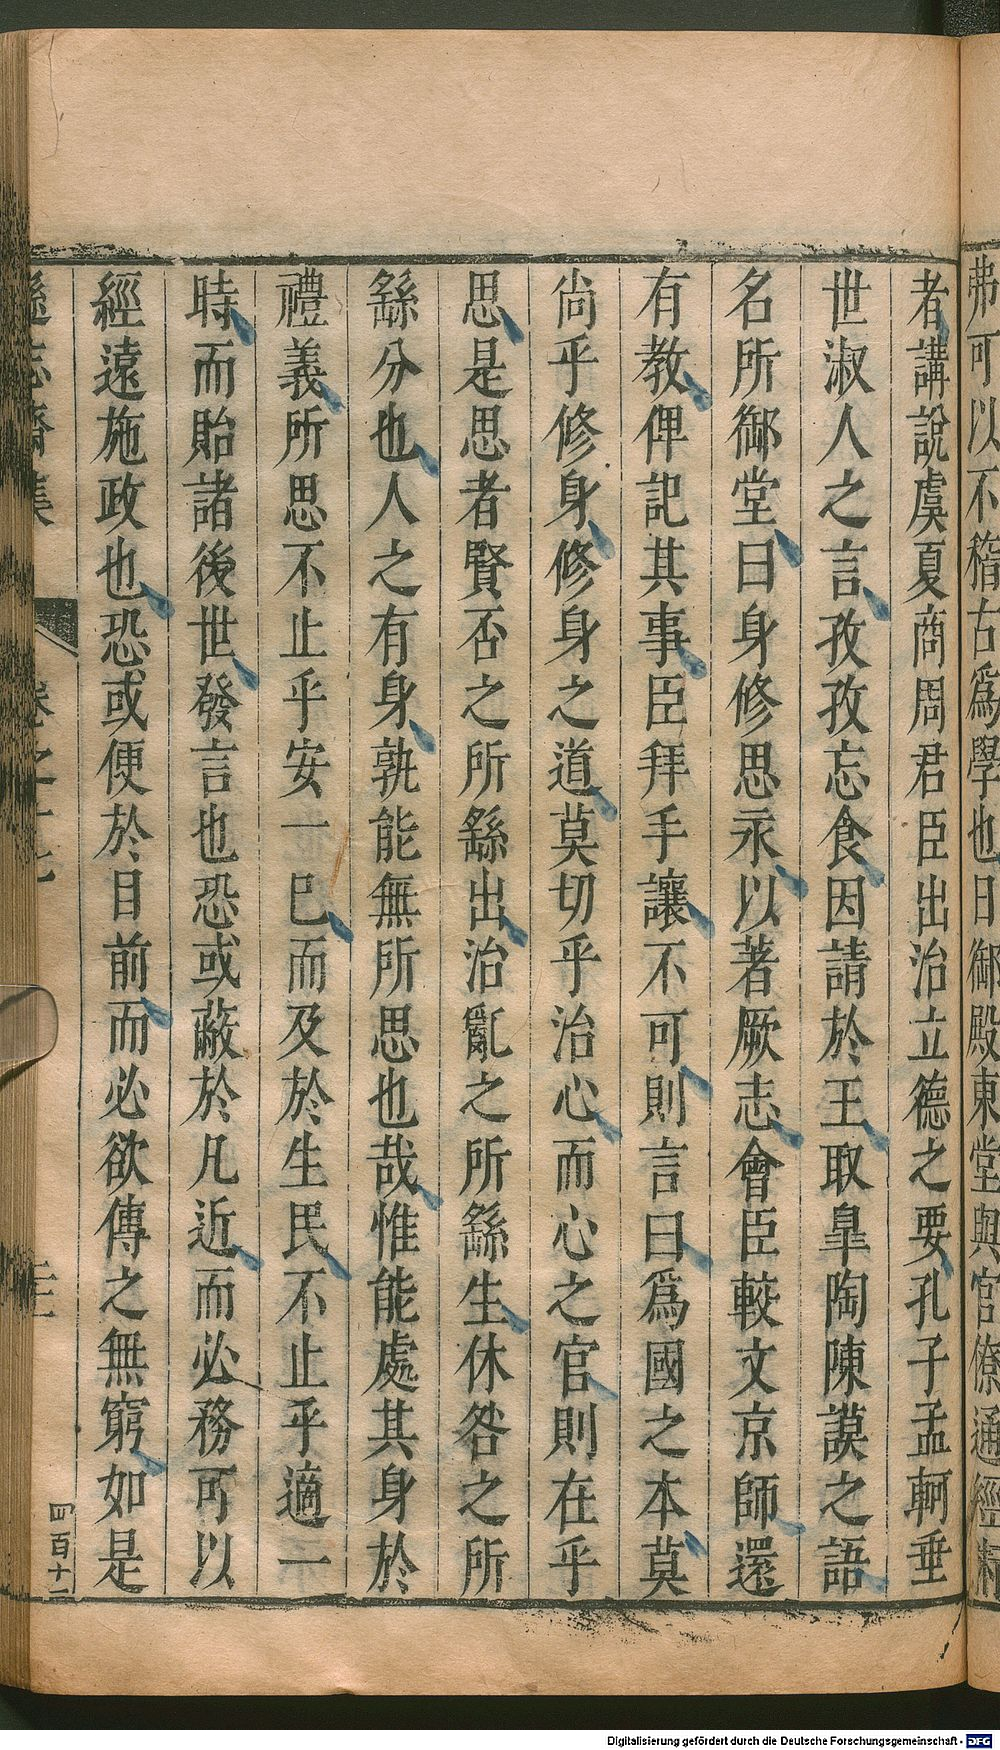 弗可以不稽古爲學也日御殿東堂與官僚通經
者講說虞夏商周君臣出治立德之要孔子孟軻垂
世淑人之言孜孜忘食因請於王取臯陶陳謨之語
名所御堂曰身修思永以著厥志會臣較文京師還
有教俾記其事臣拜手讓不可則言曰爲國之本莫
尚乎修身修身之道莫切乎治心而心之官則在乎
思是思者賢否之所繇出治亂之所繇生休咎之所
繇分也人之有身孰能無所思也哉惟能處其身於
禮義所思不止乎安一巳而及於生民不止乎適一
時而貽諸後世發言也恐或蔽於凡近而必務可以
經遠施政也恐或便於目前而必欲傳之無窮如是
遜志齋集 卷之十七
四百十二
Digitalisierung gefördert durch die Deutsche Forschungsgemeinschaft - DFG